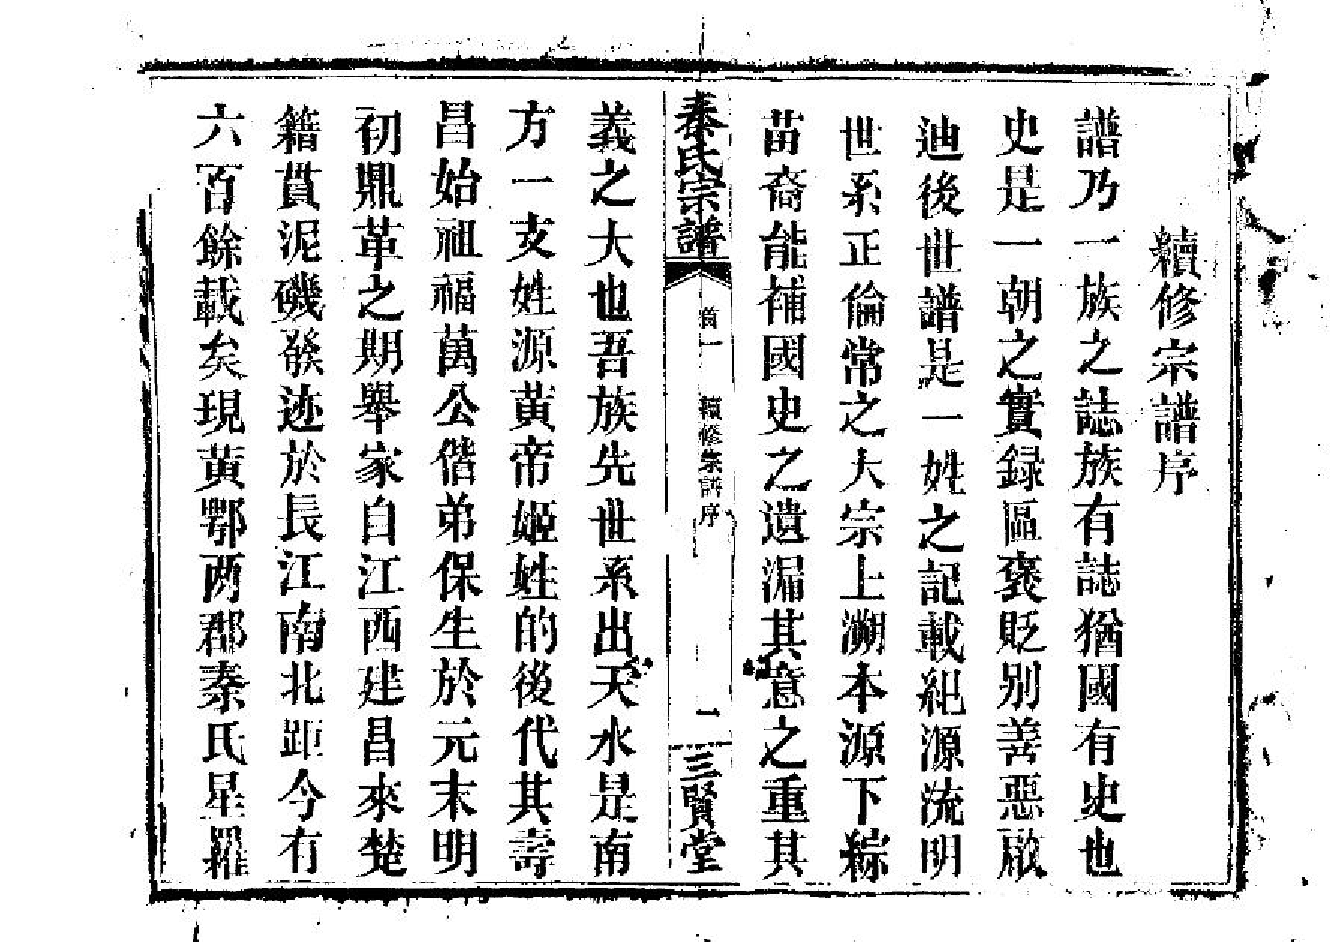 續修宗譜序
譜乃一族之誌族有誌猶國有史也
史是一朝之實録區褒貶别善惡啟
迪後世譜是一姓之記載紀源流明
世系正倫常之大宗上溯本源下綜
苗裔能補國史之遺漏其意之重其
秦氏宗譜
首一
續修宗譜序
一
三賢堂
義之大也吾族先世系出天水是南
方一支姓源黃帝姬姓的後代其壽
昌始祖福萬公偕弟保生於元末明
初鼎革之期舉家自江西建昌來楚
籍貫泥磯發迹於長江南北距今有
六百餘載矣現黃鄂两郡秦氏星羅